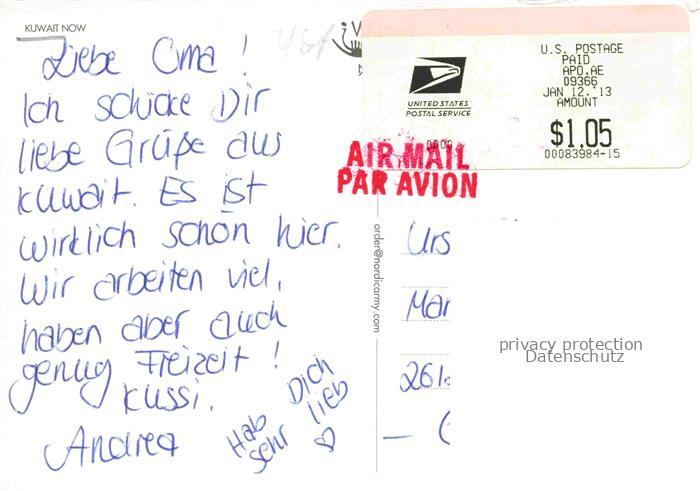 KUWAIT NOW
Liebe Oma !
Ich schicke Dir
liebe Grüße aus
Kuwait. Es ist
wirklich schön hier.
Wir arbeiten viel,
haben aber auch
genug Freizeit !
Kussi.
Andrea
Hab
Dich
sehr
lieb
♡
USA
U.S. POSTAGE
PAID
APO.AE
09366
JAN 12.'13
AMOUNT
$1.05
00083984-15
UNITED STATES
POSTAL SERVICE
0000
AIR MAIL
PAR AVION
order@nordicarmy.com
Urs
Mar
261
privacy protection
Datenschutz